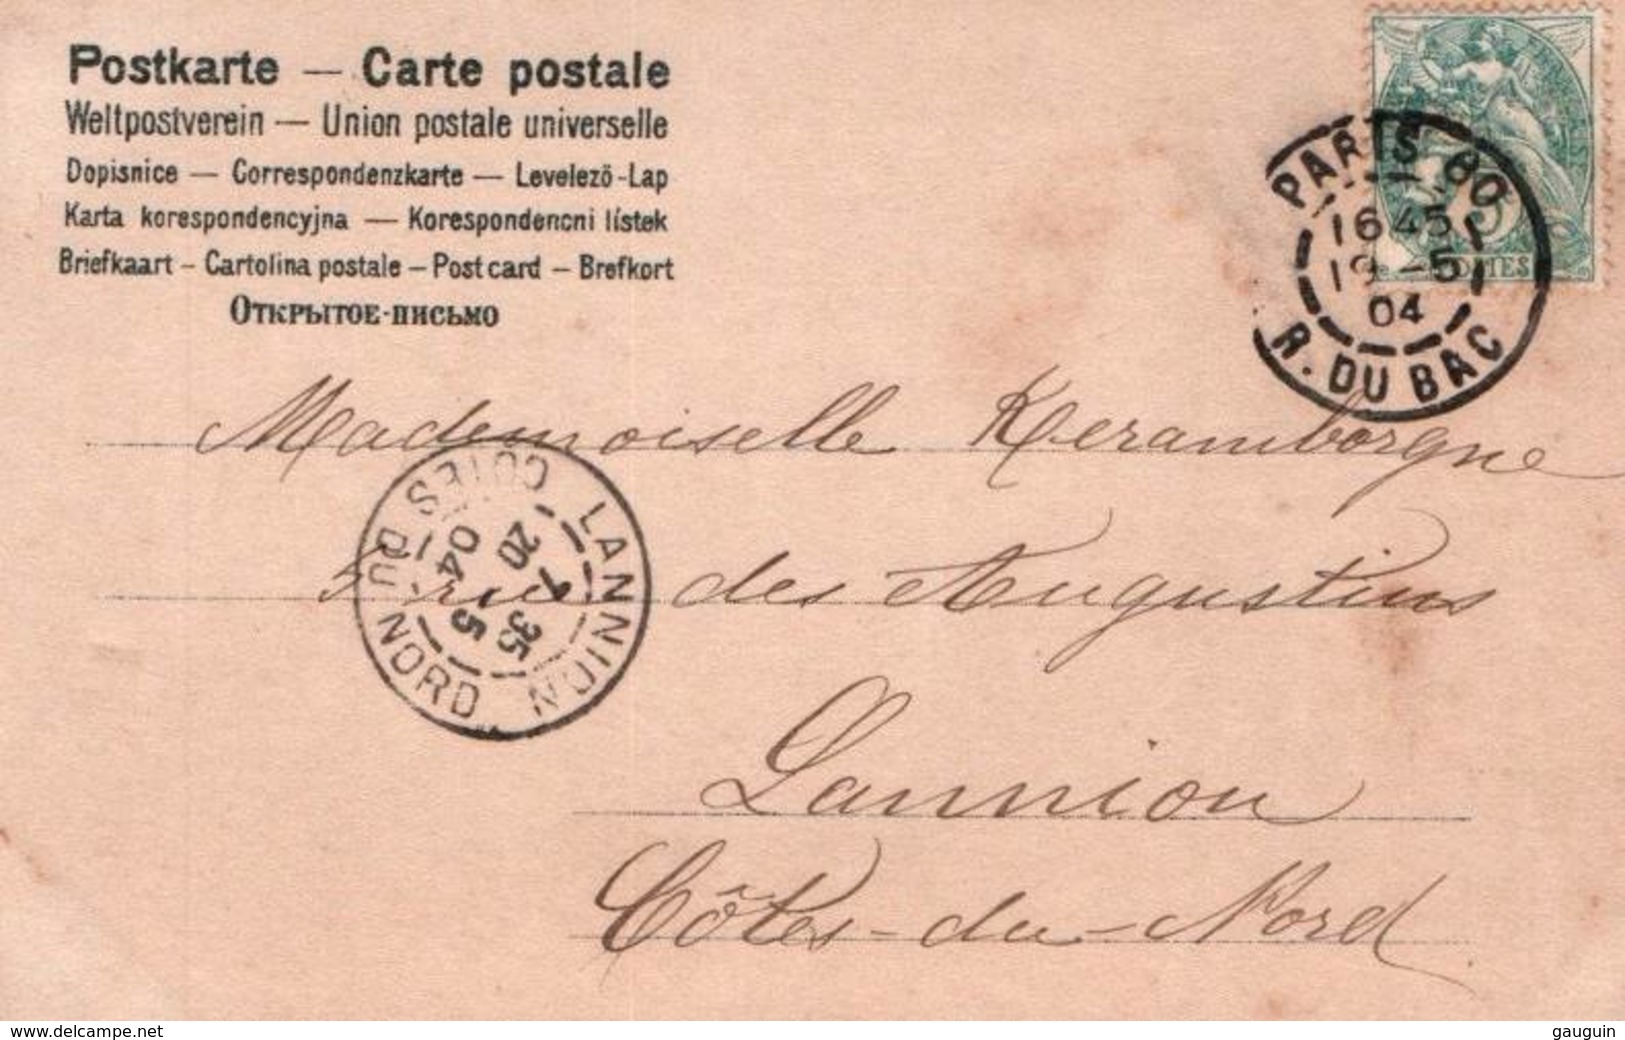 Postkarte — Carte postale
Weltpostverein — Union postale universelle
Dopisnice — Correspondenzkarte — Levelező-Lap
Karta korespondencyjna — Korespondencni lístek
Briefkaart – Cartolina postale – Post card – Brefkort
Открытое-письмо
PARIS 80
16 45
19 - 5
04
R. DU BAC
5
Mademoiselle Keramborgne
rue des Augustins
Lannion
Côtes-du-Nord
LANNION
20 5
04
7 35
COTES DU NORD
www.delcampe.net
gauguin